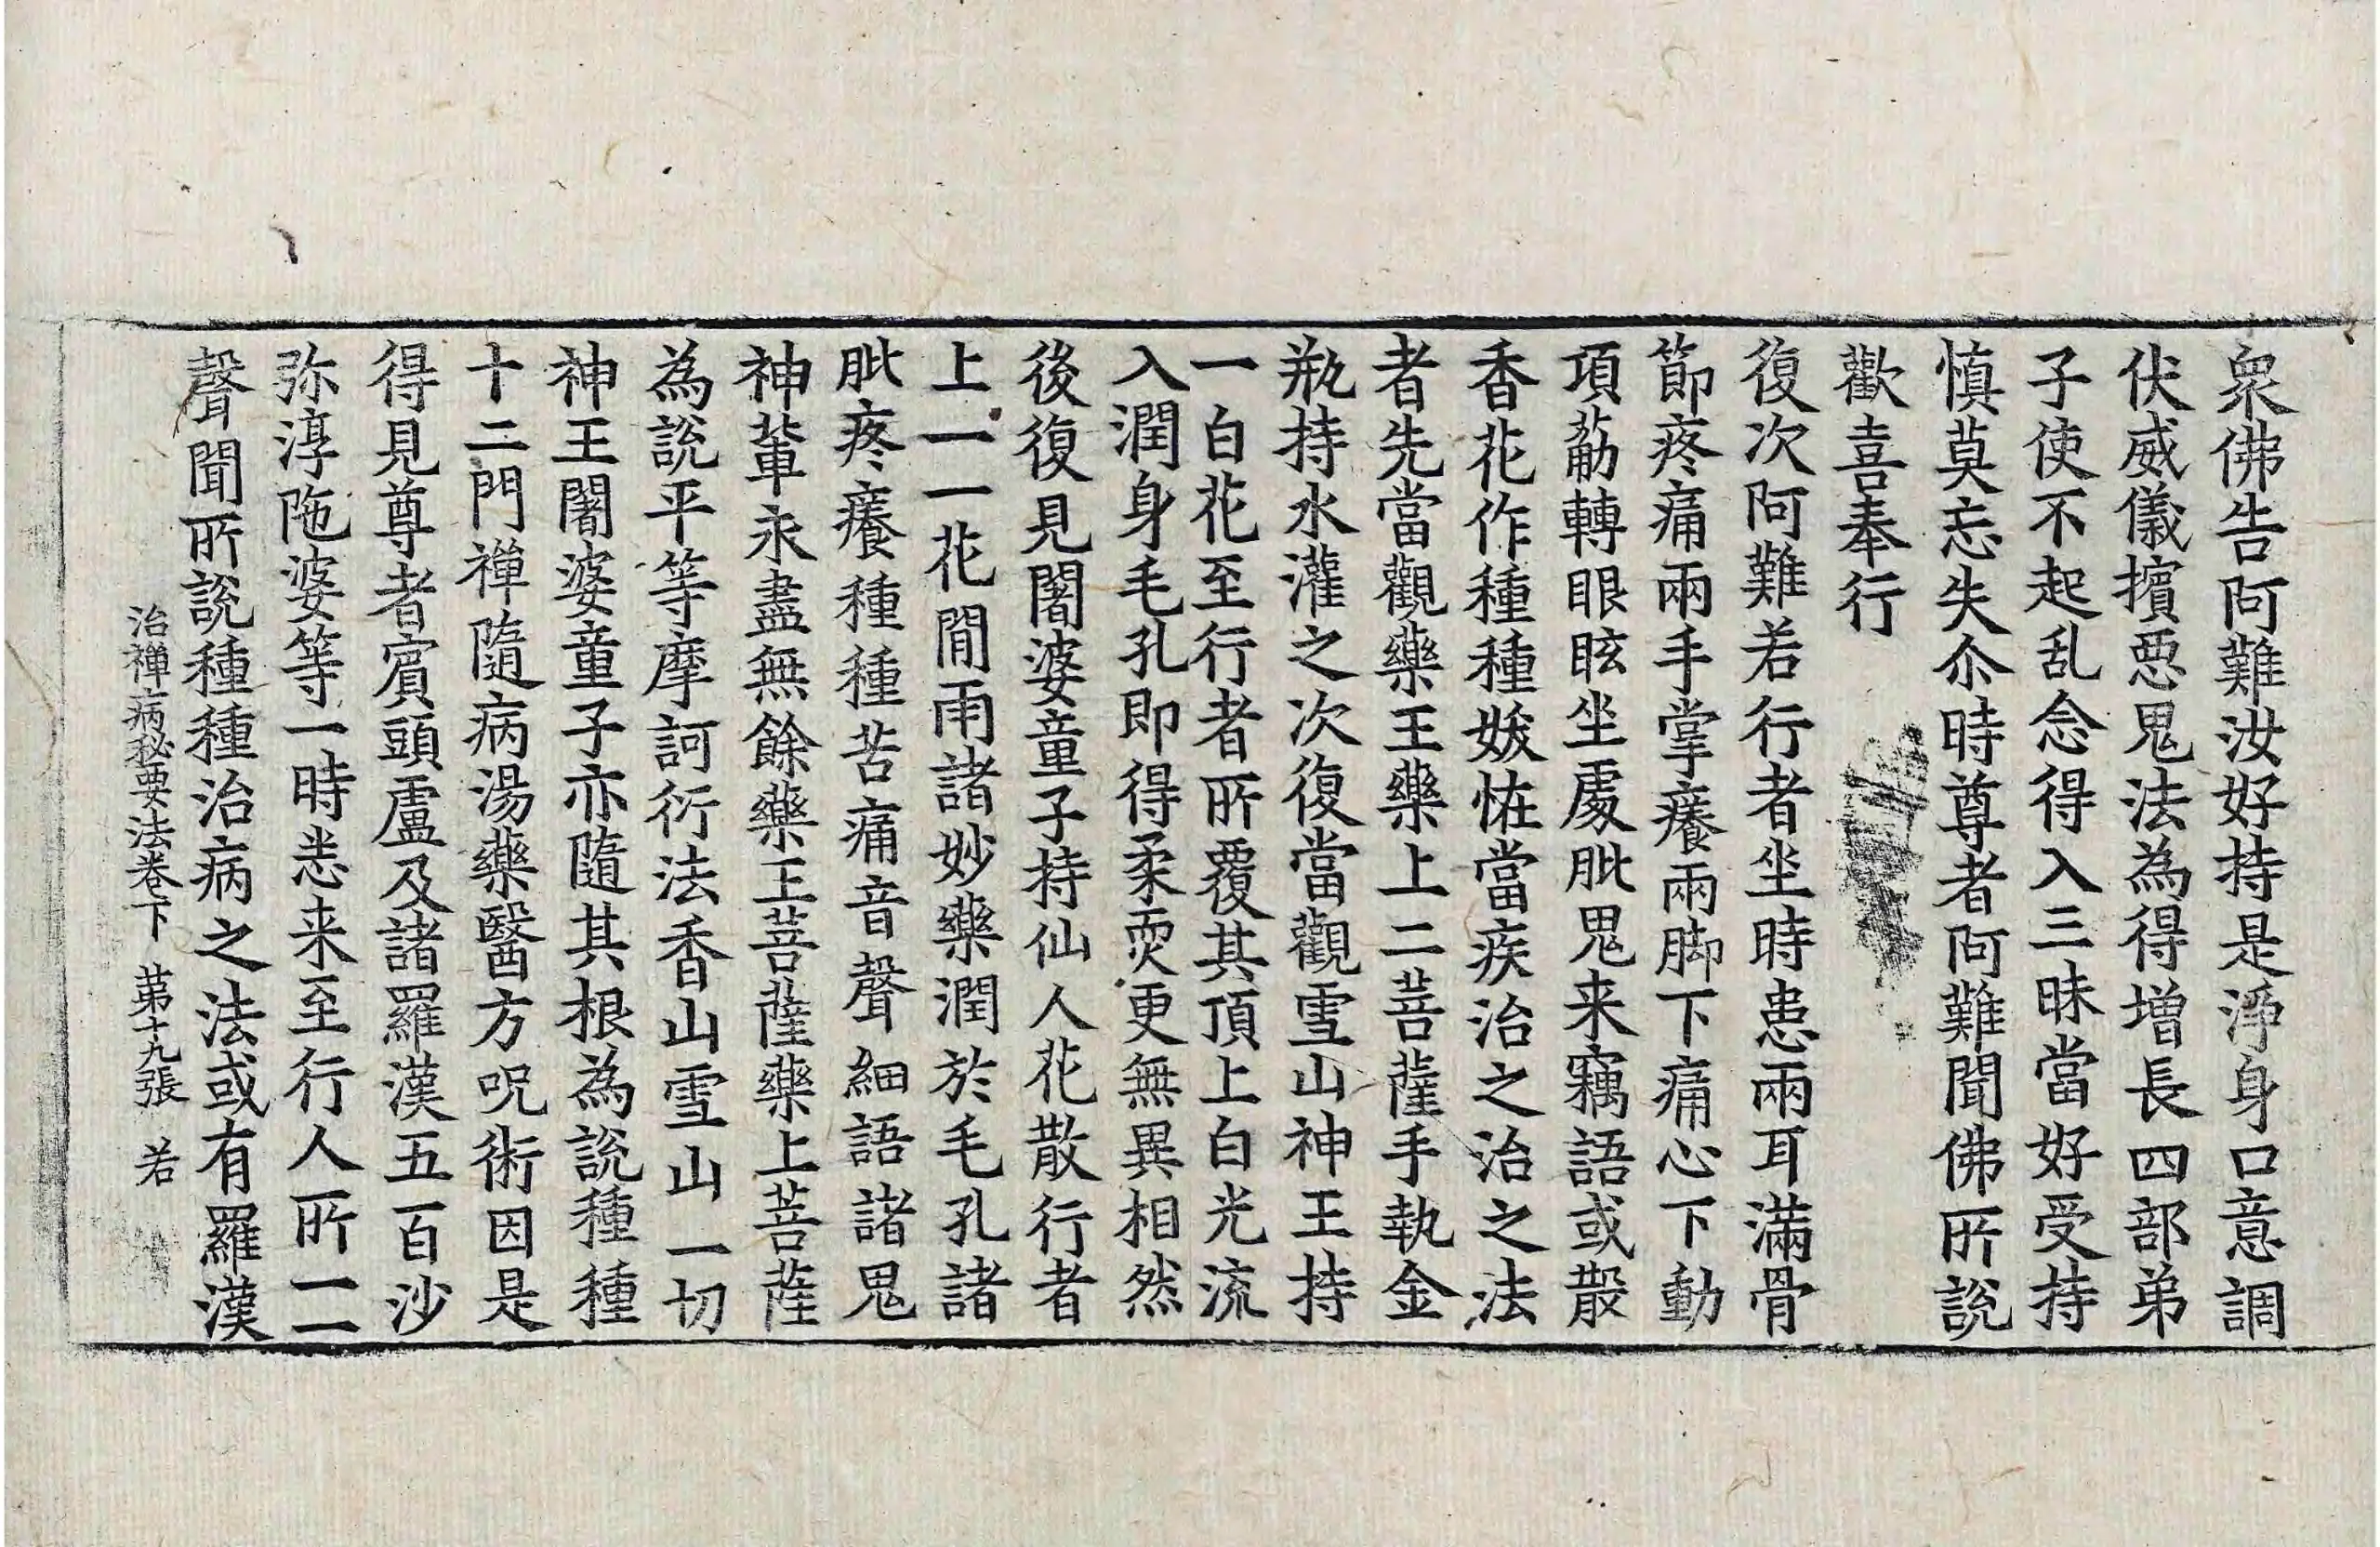 衆佛告阿難汝好持是淨身口意調
伏威儀擯惡鬼法為得增長四部弟
子使不起乱念得入三昧當好受持
慎莫忘失尒時尊者阿難聞佛所說
歡喜奉行
復次阿難若行者坐時患兩耳滿骨
節疼痛兩手掌癢兩脚下痛心下動
項筋轉眼眩坐處肶鬼来竊語或散
香花作種種妖恠當疾治之治之法
者先當觀藥王藥上二菩薩手執金
瓶持水灌之次復當觀雪山神王持
一白花至行者所覆其頂上白光流
入潤身毛孔即得柔耎更無異相然
後復見闍婆童子持仙人花散行者
上一一花閒雨諸妙藥潤於毛孔諸
肶疼癢種種苦痛音聲細語諸鬼
神輩永盡無餘藥王菩薩藥上菩薩
為說平等摩訶衍法香山雪山一切
神王闍婆童子亦隨其根為說種種
十二門禪隨病湯藥醫方呪術因是
得見尊者賓頭盧及諸羅漢五百沙
弥淳陁婆等一時悉来至行人所一一
聲聞所說種種治病之法或有羅漢
治禪病秘要法卷下 苐十九張 若